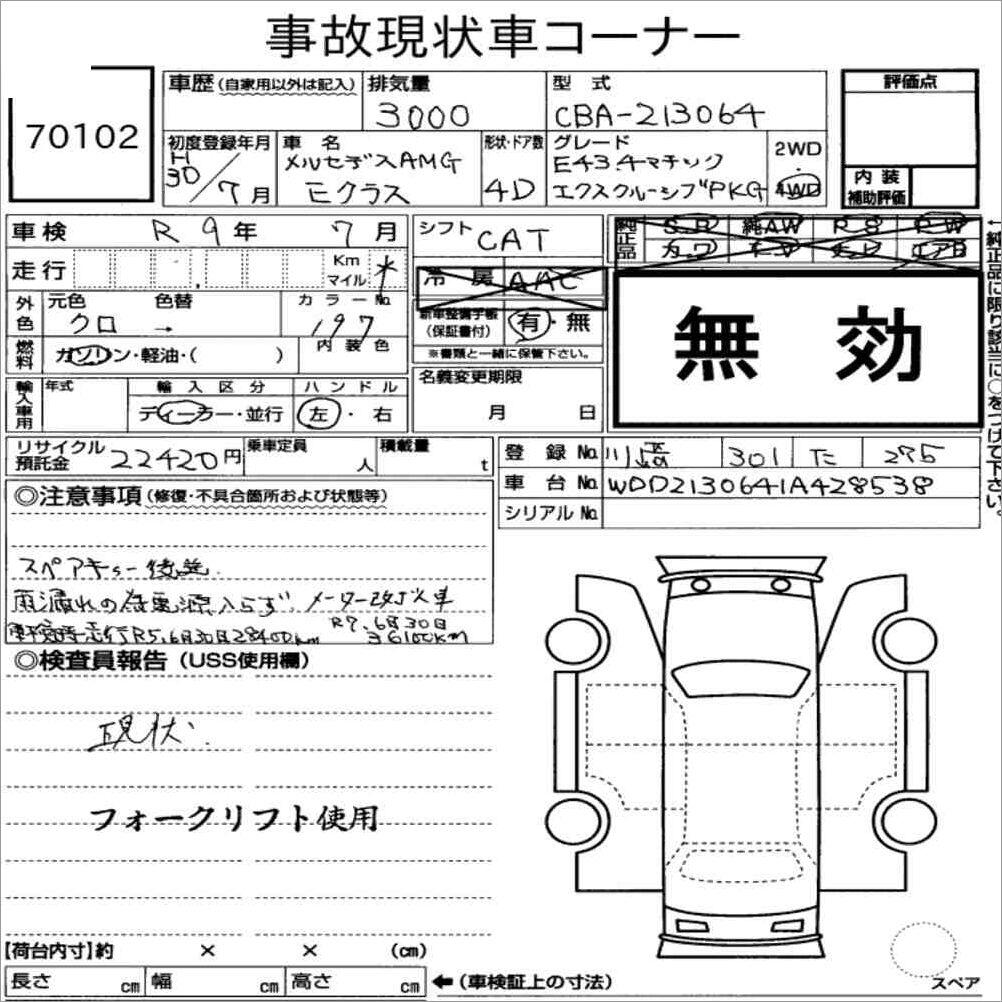 事故現状車コーナー
70102
車歴(自家用以外は記入) 排気量 型 式 評価点
3000 CBA-213064
初度登録年月 車 名 形状・ドア数 グレード 2WD
H30/7月 メルセデスAMG E43.4マチック
Eクラス 4D エクスクルーシブPKG 4WD
内 装
補助評価
車検 R 9年 7月 シフト CAT
純正品 S.R 純AW P.S P.W
カワ T.V ナビ エアB
走行 Km
マイル *
冷 房 AAC
外色 元色 色替 カラーNo
クロ → 197
内装色
新車整備手帳
(保証書付) 有・無
※書類と一緒に保管下さい。
無 効
燃料 ガソリン・軽油・( )
輸入車用 年式 輸入区分 ハンドル
ディーラー・並行 左・右
名義変更期限
月 日
←純正品に限り該当に○をつけて下さい。
リサイクル
預託金 22420円 乗車定員 人 積載量 t
登 録 No. 川崎 301 た 275
車 台 No. WDD2130641A428538
シリアル No.
◎注意事項(修復・不具合箇所および状態等)
スペアキー後送
雨漏れの為電源入らず メーター改ざん車
R7.6月30日
走行R5.6月30日28400km 36100km
◎検査員報告(USS使用欄)
現状.
フォークリフト使用
【荷台内寸】約 × × (cm)
長さ cm 幅 cm 高さ cm ←(車検証上の寸法)
スペア